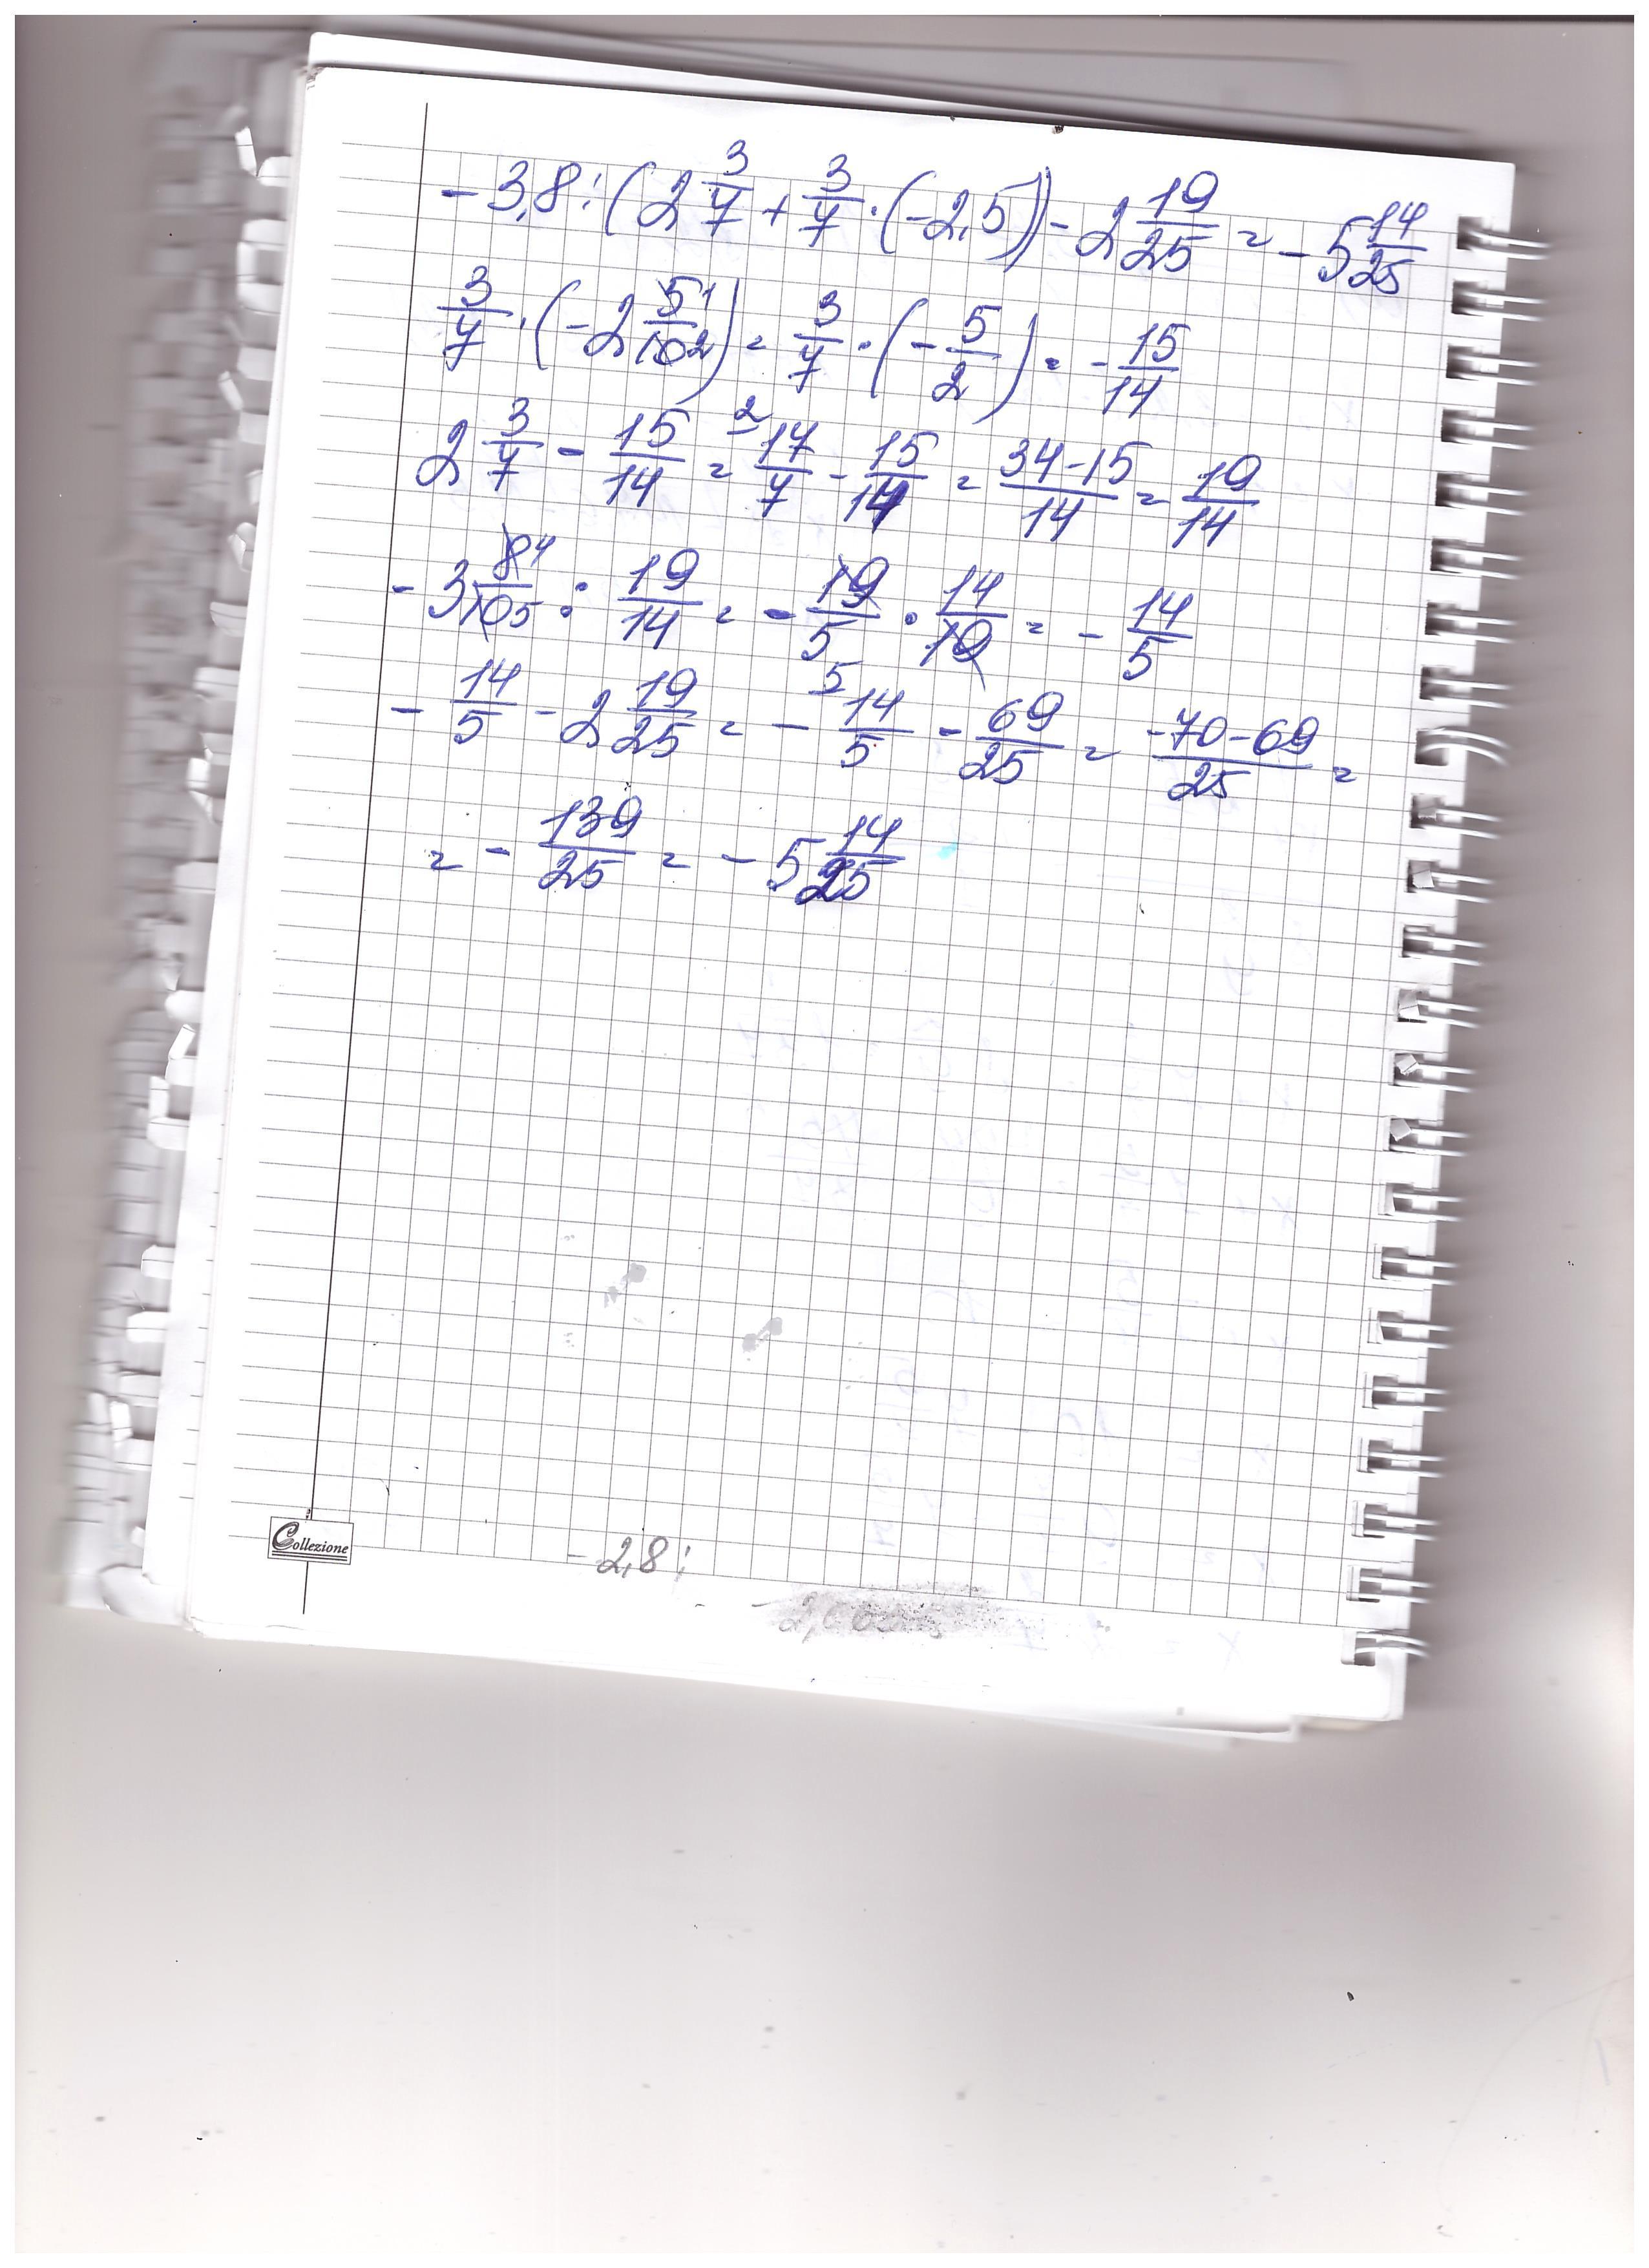 - 3,8 : (2 3/7 + 3/7 · (-2,5)) - 2 19/25 = - 5 14/25
3/7 · (-2 5/10 1 2) = 3/7 · (- 5/2) = - 15/14
2 3/7 - 15/14 = 2 17/7 - 15/14 = 34-15/14 = 19/14
- 3 8/10 4 5 : 19/14 = - 19/5 · 14/19 = - 14/5
- 14/5 - 2 19/25 = - 5 14/5 - 69/25 = -70-69/25 =
= - 139/25 = - 5 14/25
Collezione
- 2,8 :